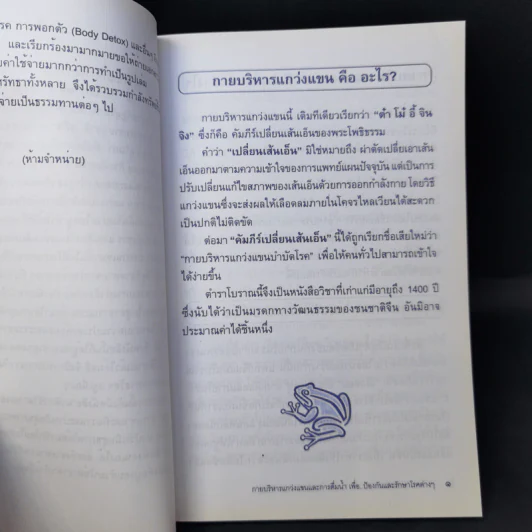 รค การพอกตัว (Body Detox) และอื่นๆ
และเรียกร้องมามากมายขอให้ถ่ายเอกสาร
ค่าใช้จ่ายมากกว่าการทำเป็นรูปเล่ม
ศรัทธาทั้งหลาย จึงได้รวบรวมกำลังทรัพย์
จ่ายเป็นธรรมทานต่อๆ ไป
(ห้ามจำหน่าย)
กายบริหารแกว่งแขน คือ อะไร?
กายบริหารแกว่งแขนนี้ เดิมทีเดียวเรียกว่า "ตำ โม้ อี้ จิน
จิง" ซึ่งก็คือ คัมภีร์เปลี่ยนเส้นเอ็นของพระโพธิธรรม
คำว่า "เปลี่ยนเส้นเอ็น" มิใช่หมายถึง ผ่าตัดเปลี่ยเอาเส้น
เอ็นออกมาตามความเข้าใจของการแพทย์แผนปัจจุบัน แต่เป็นการ
ปรับเปลี่ยนแก้ไขสภาพของเส้นเอ็นด้วยการออกกำลังกาย โดยวิธี
แกว่งแขนซึ่งจะส่งผลให้เลือดลมภายในโคจรไหลเวียนได้สะดวก
เป็นปกติไม่ติดขัด
ต่อมา "คัมภีร์เปลี่ยนเส้นเอ็น" นี้ได้ถูกเรียกชื่อเสียใหม่ว่า
"กายบริหารแกว่งแขนบำบัดโรค" เพื่อให้คนทั่วไปสามารถเข้าใจ
ได้ง่ายขึ้น
ตำราโบราณนี้จึงเป็นหนังสือวิชาที่เก่าแก่มีอายุถึง 1400 ปี
ซึ่งนับได้ว่าเป็นมรดกทางวัฒนธรรมของชนชาติจีน อันมิอาจ
ประมาณค่าได้ชิ้นหนึ่ง
กายบริหารแกว่งแขนและการดื่มน้ำ เพื่อ. ป้องกันและรักษาโรคต่างๆ ๑